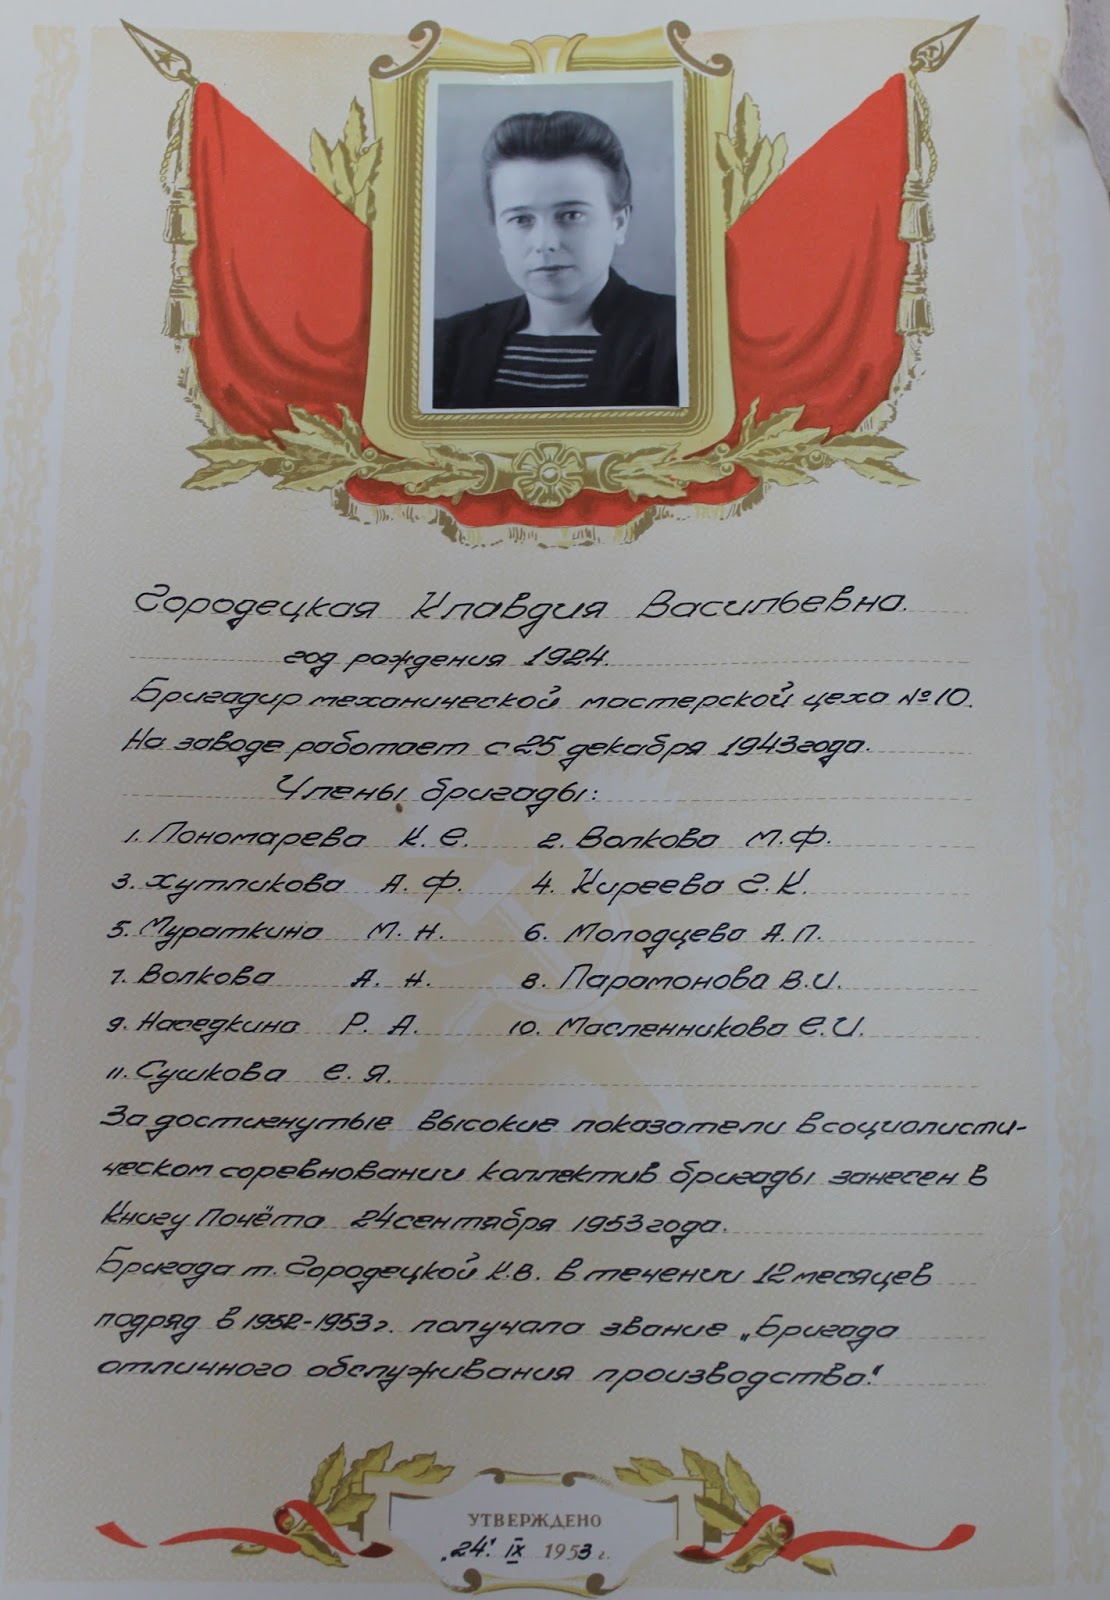 Городецкая Клавдия Васильевна.
год рождения 1924.
Бригадир механической мастерской цеха № 10.
На заводе работает с 25 декабря 1943 года.
Члены бригады:
1. Пономарева К. Е. 2. Волкова М. Ф.
3. Хутликова А. Ф. 4. Киреева Г. К.
5. Мураткина М. Н. 6. Молодцева А. П.
7. Волкова А. Н. 8. Парамонова В. И.
9. Наседкина Р. А. 10. Масленникова Е. И.
11. Сушкова Е. Я.
За достигнутые высокие показатели в социалисти-
ческом соревновании коллектив бригады занесен в
Книгу Почёта 24 сентября 1953 года.
Бригада т. Городецкой К.В. в течении 12 месяцев
подряд в 1952-1953 г. получала звание „Бригада
отличного обслуживания производства."
УТВЕРЖДЕНО
„24" IX 1953 г.